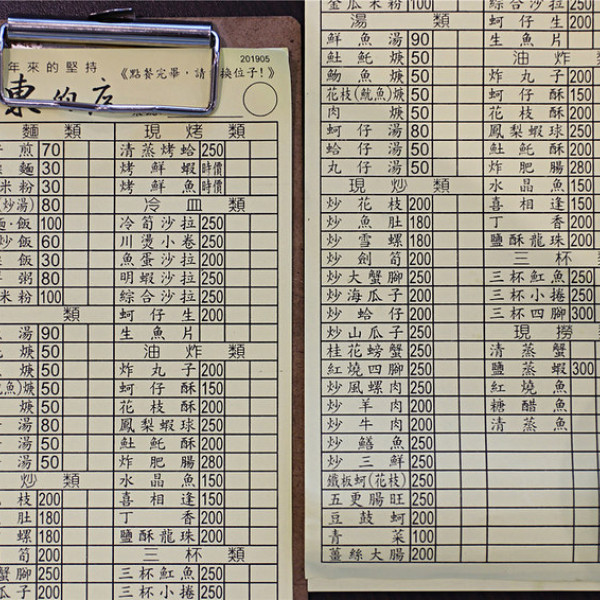 年來的堅持
201905
《點餐完畢，請 換位子!》
東的店
麵 類 現 烤 類
煎 70 清蒸烤蛤 250
麵 30 烤鮮蝦 時價
米粉 30 烤鮮魚 時價
(炒湯) 80 冷 皿 類
飯 100 冷筍沙拉 250
炒飯 60 川燙小卷 250
飯 30 魚蛋沙拉 200
粥 80 明蝦沙拉 250
米粉 100 綜合沙拉 250
類 蚵仔生 200
湯 90 生魚片
焿 50 油 炸 類
焿 50 炸丸子 200
魚)焿 50 蚵仔酥 150
焿 50 花枝酥 200
湯 80 鳳梨蝦球 250
湯 50 魠魠酥 200
湯 50 炸肥腸 280
炒 類 水晶魚 150
枝 200 喜相逢 150
肚 180 丁香 200
螺 180 鹽酥龍珠 200
筍 200 三 杯 類
蟹腳 250 三杯魟魚 250
瓜子 200 三杯小捲 250
金瓜米粉 100 綜合沙拉 250
湯 類 蚵仔生 200
鮮魚湯 90 生魚片
魠魠焿 50 油 炸
魩魚焿 50 炸丸子 200
花枝(魷魚)焿 50 蚵仔酥 150
肉焿 50 花枝酥 200
蚵仔湯 80 鳳梨蝦球 250
蛤仔湯 50 魠魠酥 200
丸仔湯 50 炸肥腸 280
現 炒 類 水晶魚 150
炒花枝 200 喜相逢 150
炒魚肚 180 丁香 200
炒雪螺 180 鹽酥龍珠 200
炒劍筍 200 三 杯
炒大蟹腳 250 三杯魟魚 250
炒海瓜子 200 三杯小捲 250
炒蛤仔 200 三杯四腳 300
炒山瓜子 250 現 撈
桂花螃蟹 250 清蒸蟹
紅燒四腳 250 鹽蒸蝦 300
炒風螺肉 250 紅燒魚
炒羊肉 200 糖醋魚
炒牛肉 200 清蒸魚
炒鱔魚 250
炒三鮮 250
鐵板蚵(花枝) 250
五更腸旺 250
豆鼓蚵 200
青菜 100
薑絲大腸 200